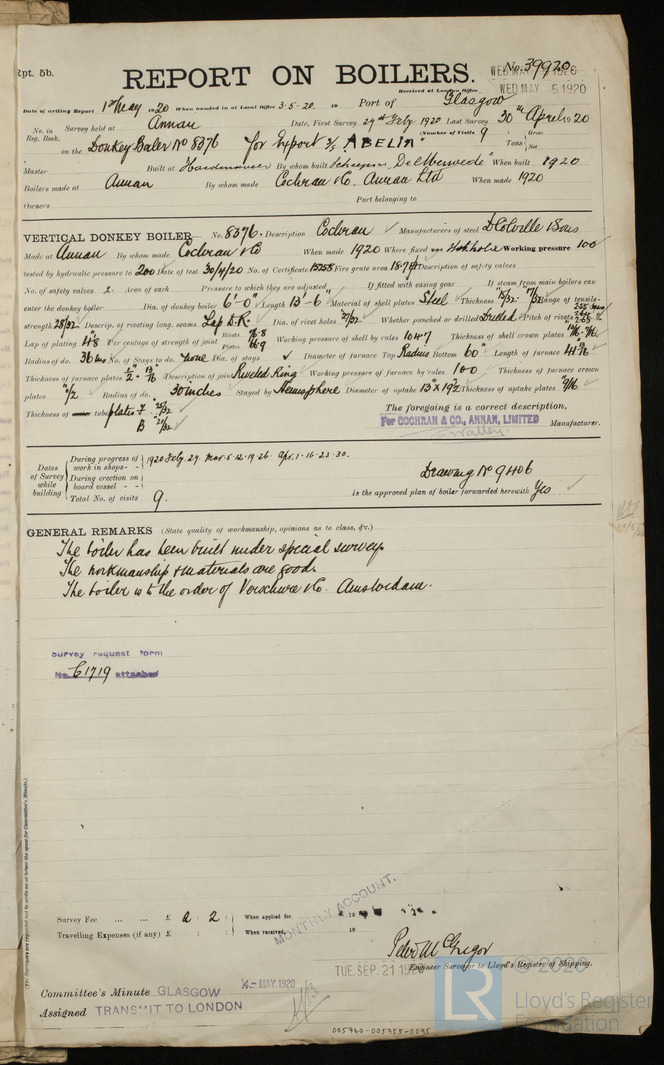 Rpt. 5b.
REPORT ON BOILERS.
No. 39920.
WED MAY 5 1920
Received at London Office
WED MAY 5 1920
Date of writing Report 1st May 1920 When handed in at Local Office 3.5.20. 19 Port of Glasgow
No. in Reg. Book. Survey held at Annan Date, First Survey 27th Feby 1920 Last Survey 30th April 1920
(Number of Visits 9
on the Donkey Boiler No 8376 for Export "ABELIA" Tons Gross Net
Master Built at By whom built De Merwede When built 1920
Boilers made at Annan By whom made Cochran & Co. Annan Ltd When made 1920
Owners Port belonging to
VERTICAL DONKEY BOILER No. 8376. Description Cochran Manufacturers of steel D Colville & Sons
Made at Annan By whom made Cochran & Co When made 1920 Where fixed Working pressure 100
tested by hydraulic pressure to 200 Date of test 30/4/20 No. of Certificate 15258 Fire grate area Description of safety valves
No. of safety valves 2. Area of each Pressure to which they are adjusted If fitted with easing gear If steam from main boilers can
enter the donkey boiler Dia. of donkey boiler 6'-0" Length 13'-6" Material of shell plates Steel Thickness 15/32" 17/32" Range of tensile
strength 28/32 Descrip. of riveting long. seams Lap D.R. Dia. of rivet holes 27/32" Whether punched or drilled Drilled Pitch of rivets
Lap of plating 4"8 Per centage of strength of joint Rivets 76.8 Plates 66.9 Working pressure of shell by rules 104.7 Thickness of shell crown plates
Radius of do. 36 ins No. of Stays to do. none Dia. of stays Diameter of furnace Top Radius Bottom 60" Length of furnace
Thickness of furnace plates Description of joint Riveted Ring Working pressure of furnace by rules 100 Thickness of furnace crown
plates "1/2 Radius of do. 30 inches Stayed by Hemisphere Diameter of uptake 13" x 19 1/2 Thickness of uptake plates "9/16
Thickness of tube plates F "25/32
B "21/32
The foregoing is a correct description,
For COCHRAN & CO., ANNAN, LIMITED
Manufacturer.
Dates of Survey while building
During progress of work in shops - - 1920 Feby. 27. Mar. 5.12.19.26. Apr. 1.16.23.30.
During erection on board vessel - - -
Total No. of visits 9.
Drawing No 9406
Is the approved plan of boiler forwarded herewith Yes
GENERAL REMARKS (State quality of workmanship, opinions as to class, &c.)
The boiler has been built under special survey.
The workmanship & materials are good.
The boiler is to the order of Verschure & Co. Amsterdam.
Survey request form
No. 61719 attached
(The Surveyors are requested not to write on or below the space for Committee's Minute.)
Survey Fee ... ... £ 2 : 2 : When applied for,
Travelling Expenses (if any) £ : : When received, 19
MONTHLY ACCOUNT.
Peter McGregor
Engineer Surveyor to Lloyd's Register of Shipping.
TUE. SEP. 21 1920
Committee's Minute GLASGOW 4-MAY.1920
Assigned TRANSMIT TO LONDON
© 2020
LR
Lloyd's Register
Foundation
005740-005755-0095